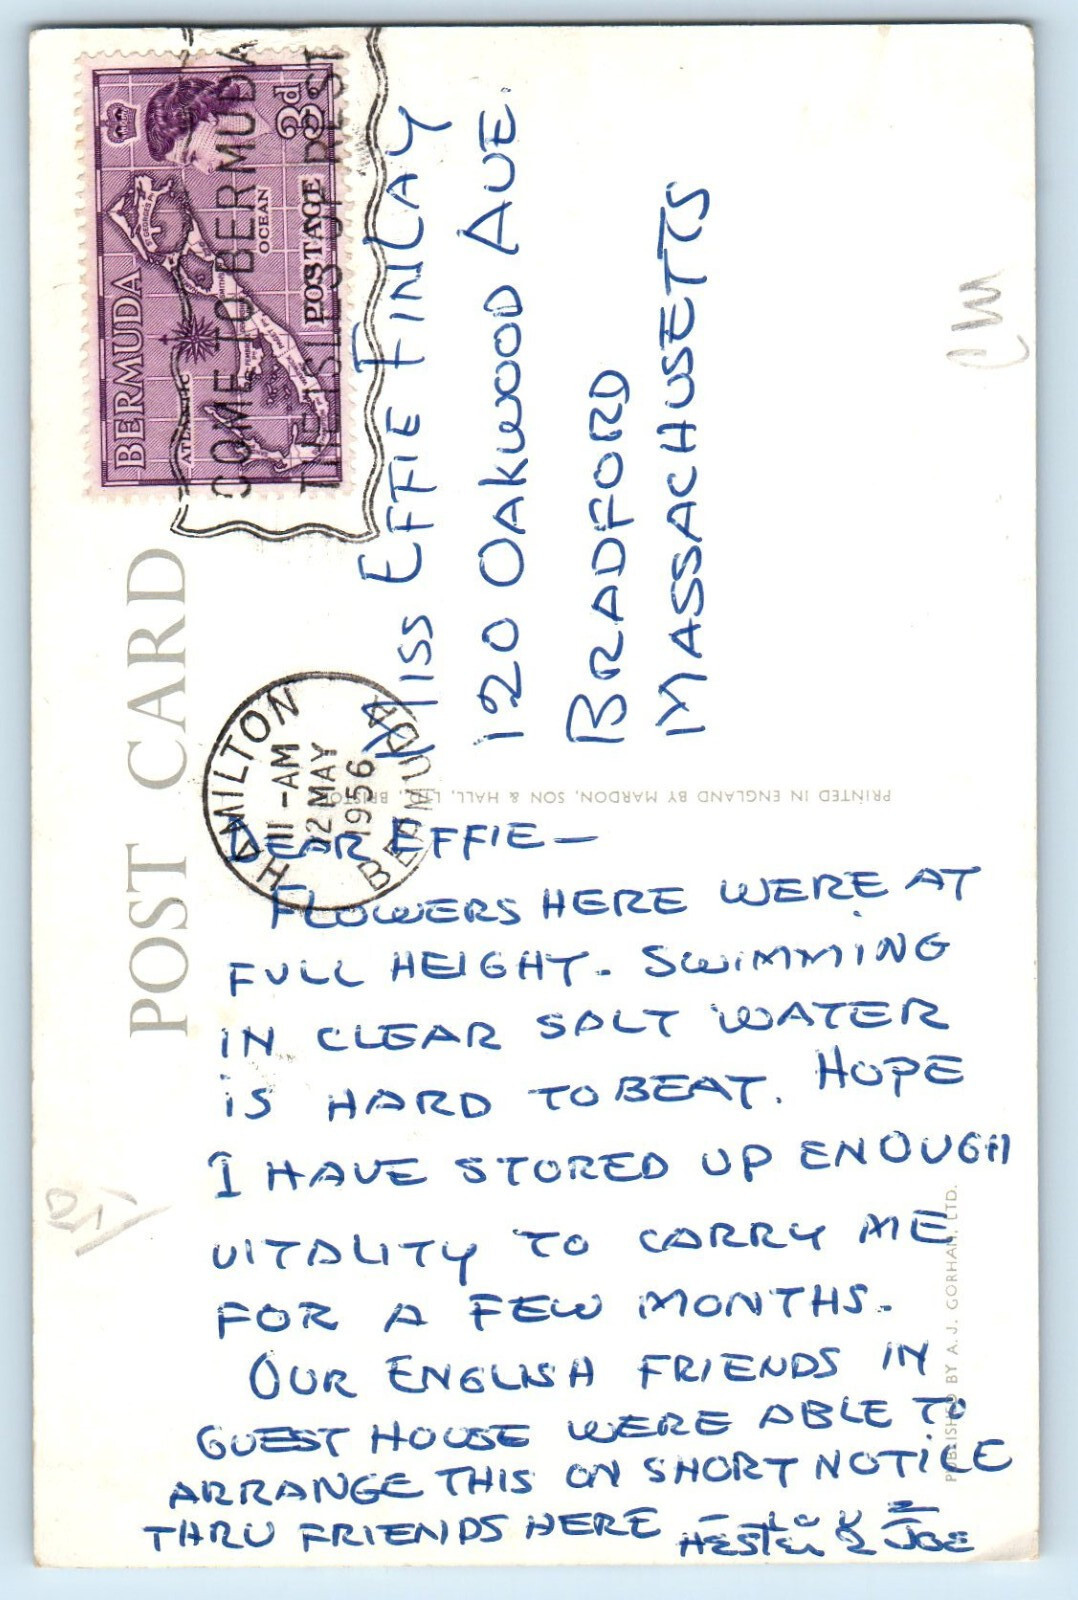 POST CARD
BERMUDA
ATLANTIC
OCEAN
POSTAGE
3d
COME TO BERMUDA
THE ISLES OF REST
HAMILTON
11-AM
12 MAY
1956
BERMUDA
MISS EFFIE FINLAY
120 OAKWOOD AVE.
BRADFORD
MASSACHUSETTS
PRINTED IN ENGLAND BY MARDON, SON & HALL, LTD., BRISTOL
DEAR EFFIE—
FLOWERS HERE WERE AT
FULL HEIGHT. SWIMMING
IN CLEAR SALT WATER
IS HARD TO BEAT. HOPE
I HAVE STORED UP ENOUGH
VITALITY TO CARRY ME
FOR A FEW MONTHS.
OUR ENGLISH FRIENDS IN
GUEST HOUSE WERE ABLE TO
ARRANGE THIS ON SHORT NOTICE
THRU FRIENDS HERE
HESTER & JOE
PUBLISHED BY A. J. GORHAM, LTD.